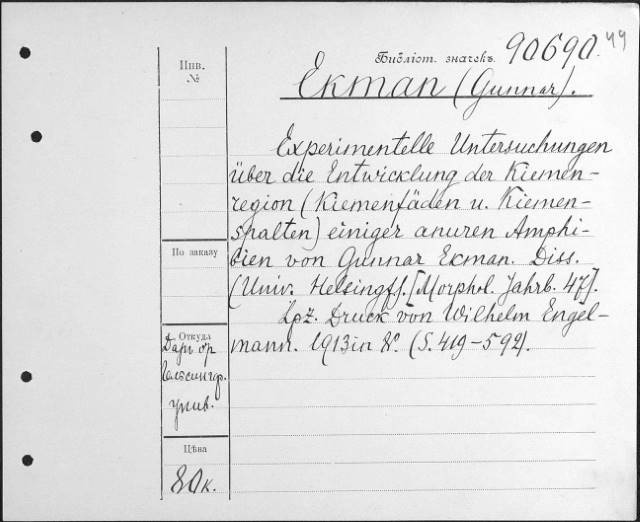 49
Библіот. значекъ. 90690.
Инв.
№
Екман (Gunnar).
Experimentelle Untersuchungen
über die Entwicklung der Kiemen-
region (Kiemenfäden u. Kiemen-
spalten) einiger anuren Amphi-
bien von Gunnar Ekman. Diss.
(Univ. Helsingf). [Morphol. Jahrb. 47].
Lpz. Druck von Wilhelm Engel-
mann. 1913 in 8°. (S. 419-592).
По заказу
Откуда
Даръ
Гельсингф.
унив.
Цѣна
80 к.